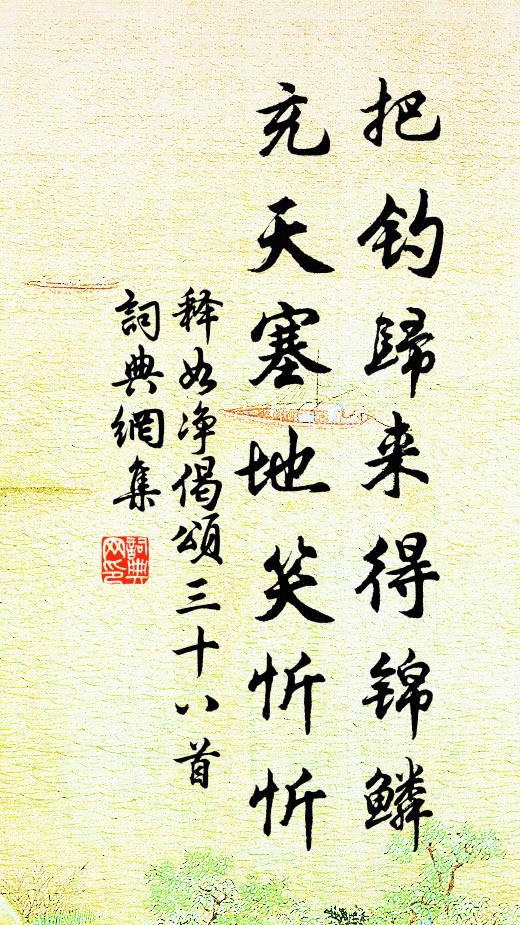 把钓歸来得锦鳞
充天塞地笑忻忻
释如净偈颂三十八首
詞典網集
詞典网印